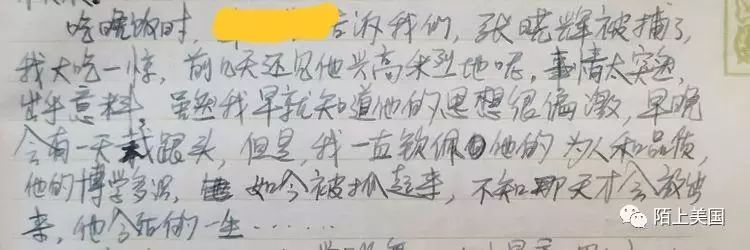 吃晚饭时, 告诉我们, 张晓辉被捕了,
我大吃一惊, 前几天还见他兴高采烈地呢, 事情太突然,
出乎意料, 虽然我早就知道他的思想很偏激, 早晚
会有一天栽跟头, 但是, 我一直钦佩他的为人和品质,
他的博学多识, 如今被抓起来, 不知那天才会放出
来, 他今后的一生......
陌上美国